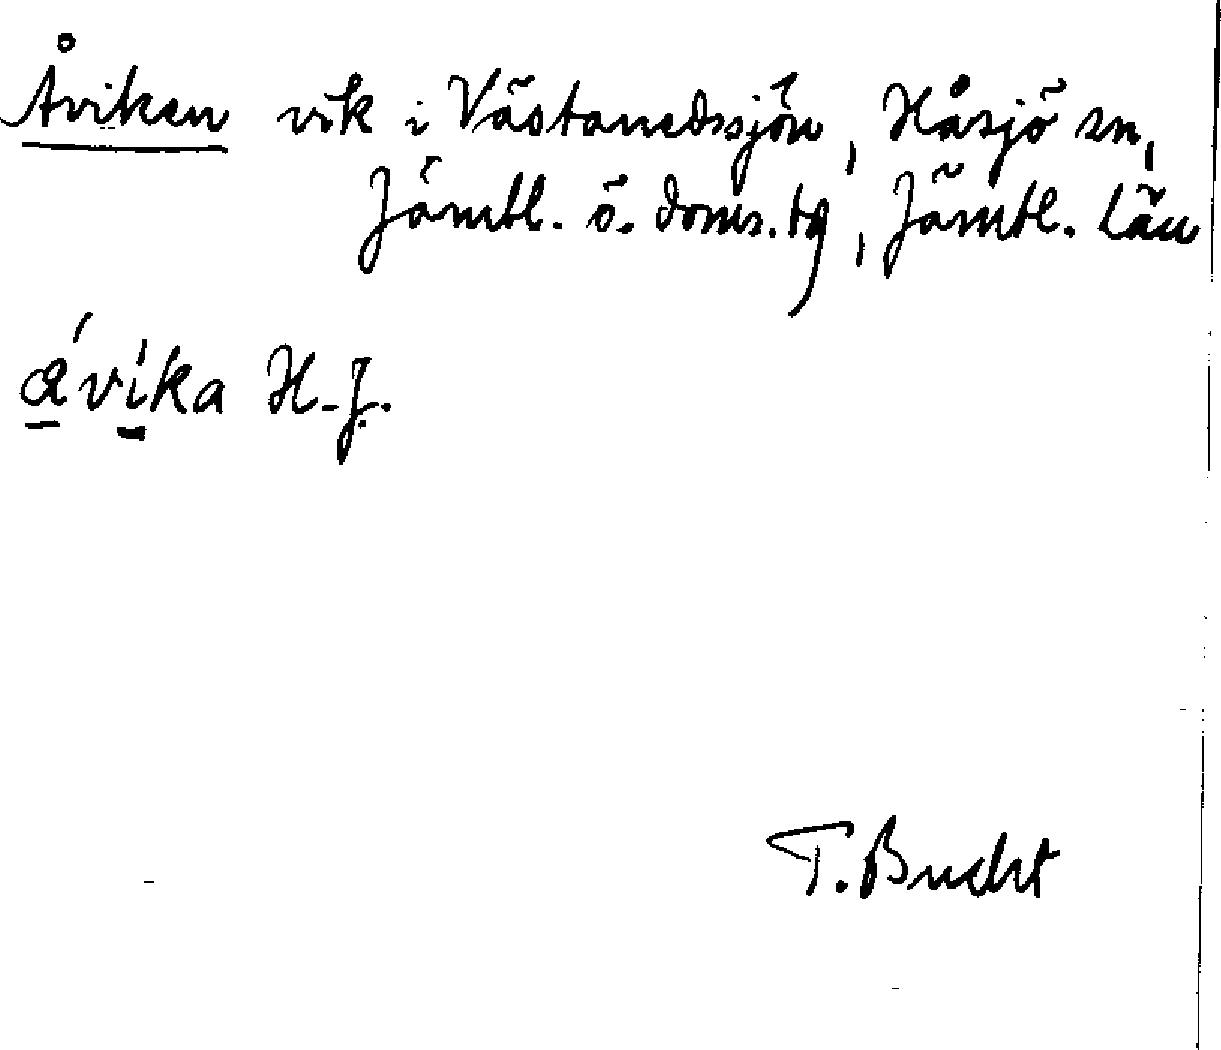 Åviken vik i Västanedssjön, Håsjö sn,
Jämtl. ö. doms. tg, Jämtl. län
ávíka H-J.
T. Bucht